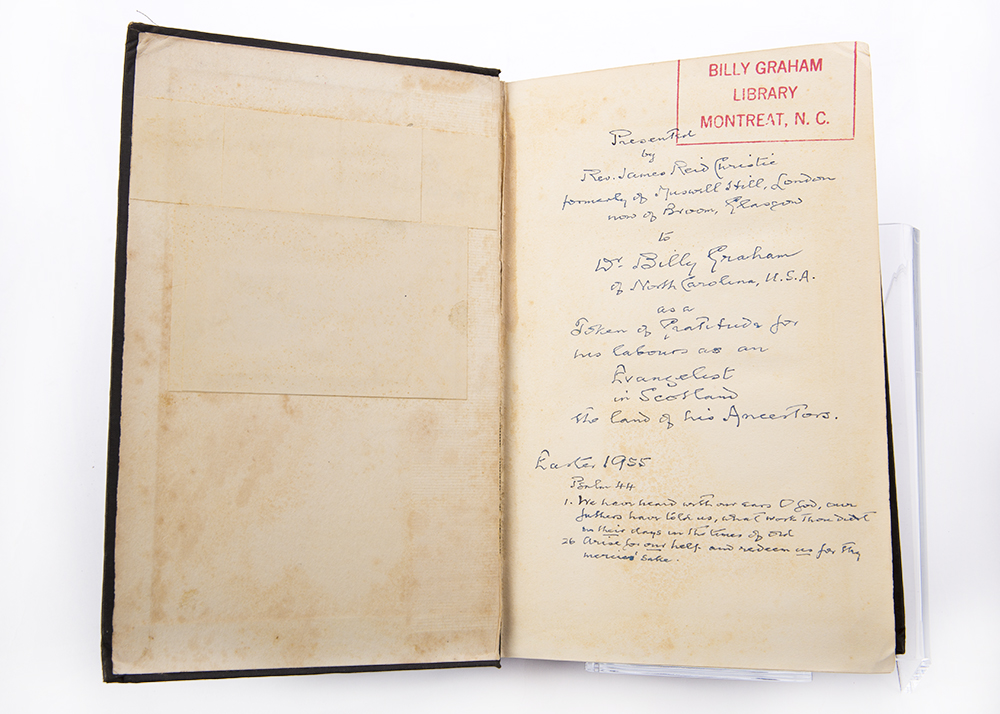 BILLY GRAHAM
LIBRARY
MONTREAT, N. C.
Presented
by
Rev. James Reid Christie
formerly of Muswell Hill, London
now of Broom, Glasgow
to
Dr. Billy Graham
of North Carolina, U.S.A.
as a
Token of Gratitude for
his labours as an
Evangelist
in Scotland
the land of his Ancestors.
Easter 1955
Psalm 44
1. We have heard with our ears O God, our
fathers have told us, what work thou didst
in their days in the times of old
26 Arise for our help and redeem us for thy
mercies' sake.